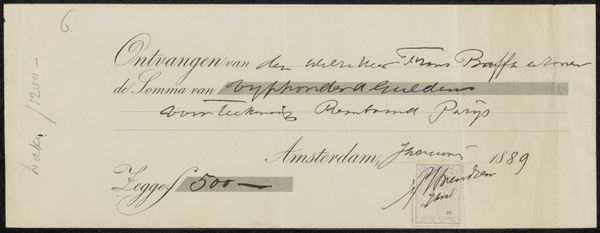 6.
Ontvangen van den WelEd Heer Frans Buffa & Zonen
de Somma van Vyfhonderd Guldens
voor teekening Rembrand Parijs
Amsterdam, Januari 1889
Zegge ƒ 500 —
/1200 -